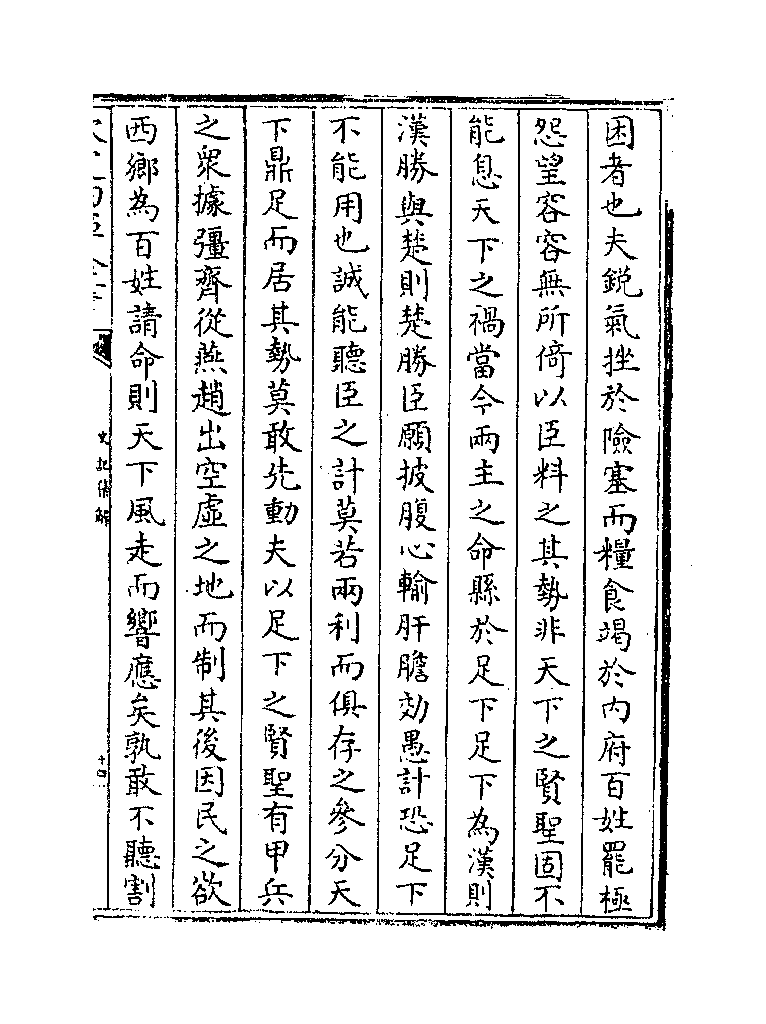 困者也夫鋭氣挫於險塞而糧食竭於内府百姓罷極
怨望容容無所倚以臣料之其勢非天下之賢聖固不
能息天下之禍當今兩主之命縣於足下足下為漢則
漢勝與楚則楚勝臣願披腹心輸肝膽効愚計恐足下
不能用也誠能聽臣之計莫若兩利而俱存之參分天
下鼎足而居其勢莫敢先動夫以足下之賢聖有甲兵
之衆據彊齊從燕趙出空虛之地而制其後因民之欲
西鄉為百姓請命則天下風走而響應矣孰敢不聽割
史記集解
十四